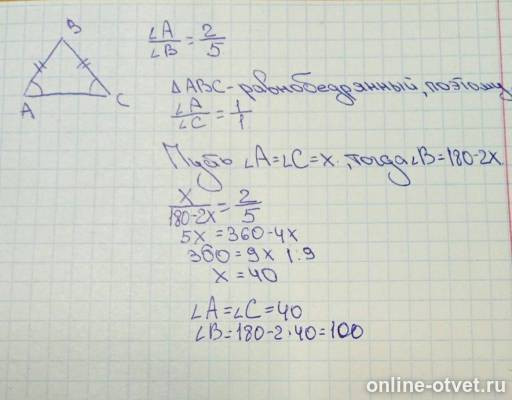 B
A
C
∠A/∠B = 2/5
△ABC - равнобедрянный, поэтому
∠A/∠C = 1/1
Пусть ∠A=∠C=x, тогда ∠B=180-2x
x/(180-2x) = 2/5
5x = 360-4x
360 = 9x |:9
x = 40
∠A=∠C=40
∠B=180-2·40=100
online-otvet.ru